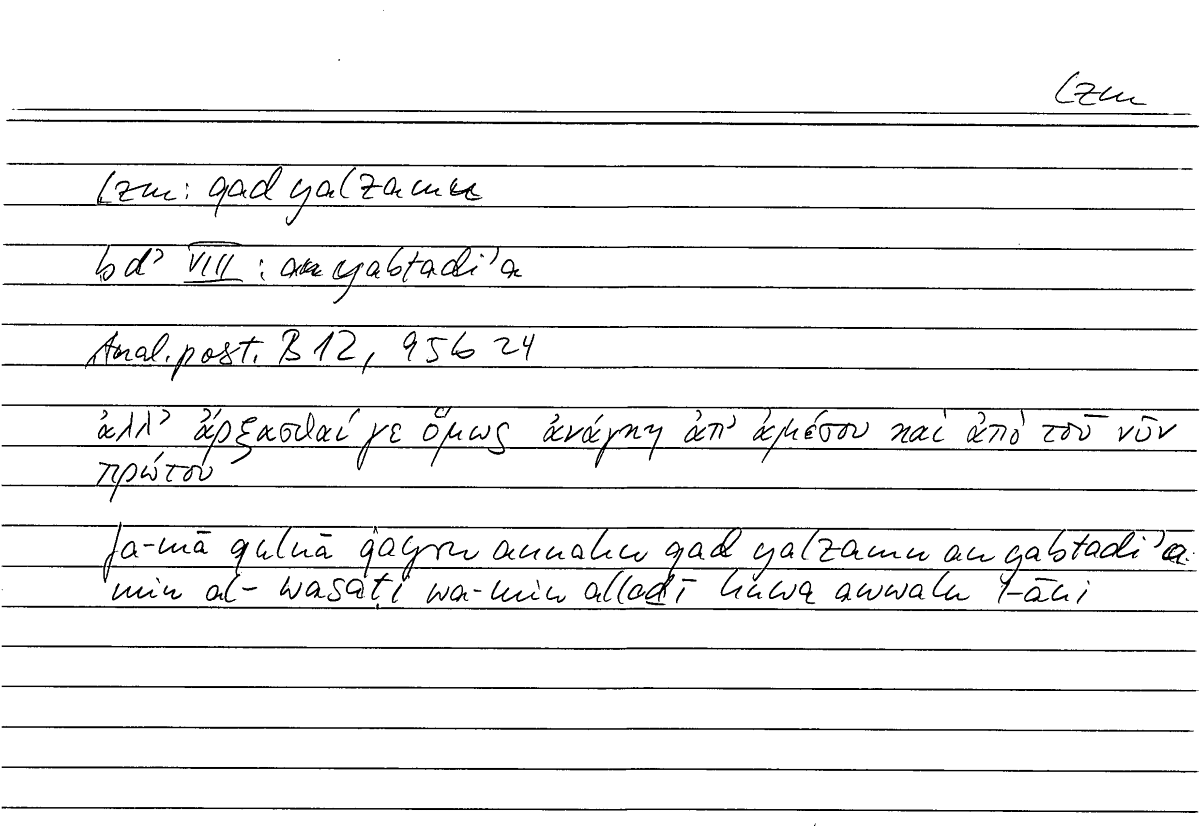 lzm
lzm: qad yalzamu
bdʾ VIII: an yabtadiʾa
Anal. post. B 12, 95b 24
ἀλλ' ἄρξασθαί γε ὅμως ἀνάγκη ἀπ' ἀμέσου καὶ ἀπὸ τοῦ νῦν
πρώτου
fa-mā qulnā ġayru annahu qad yalzamu an yabtadiʾa
min al-wasaṭi wa-min allaḏī huwa awwalu l-āni